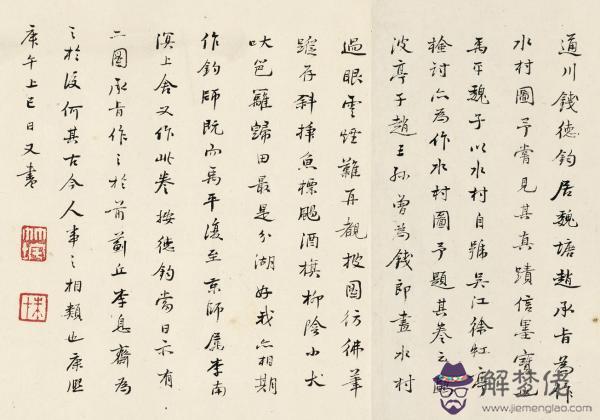 通川錢德鈞居魏塘趙承旨為作
水村圖予嘗見其真蹟信墨寶也
禹平魏子以水村自號吳江徐虹亭
檢討亦為作水村圖予題其卷云
波亭子趙王孫曾為錢郎畫水村
過眼雲煙難再覩披圖彷彿筆
蹤存斜揷魚標颺酒旗柳陰小犬
吠笆籬歸田最是分湖好我亦相期
作釣師既而禹平復至京師屬李南
溟上舍又作此卷按德鈞當日亦有
二圖承旨作之於前薊丘李息齋為
之於後何其古今人事之相類也康熙
庚午上巳日又書
解梦佬
www.jiemenglao.com